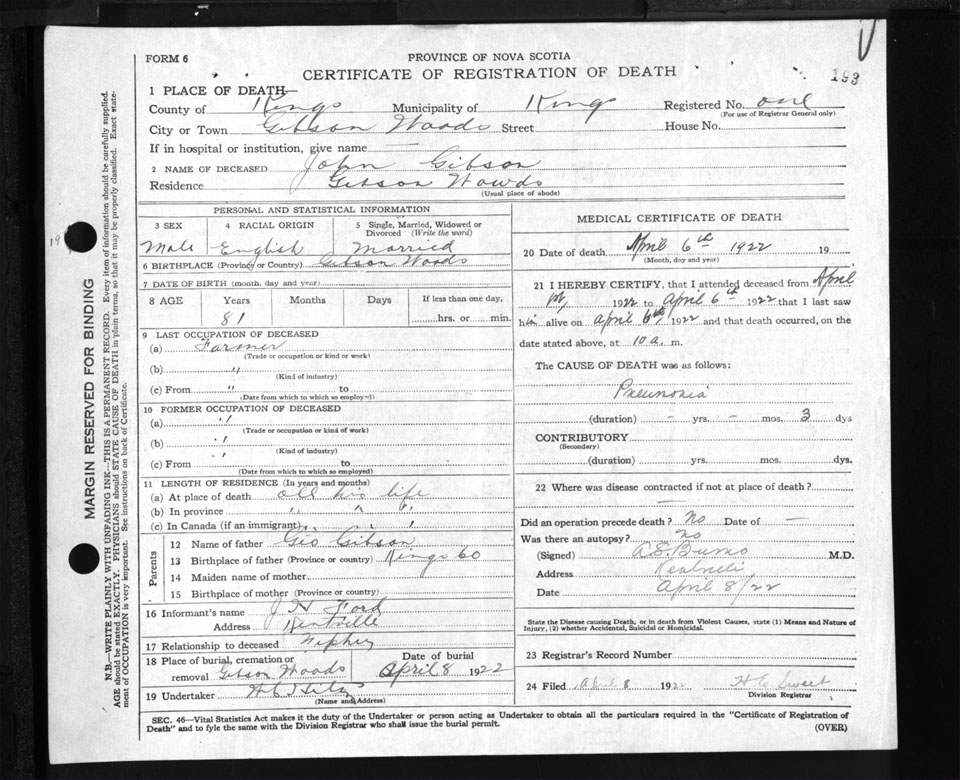 FORM 6
PROVINCE OF NOVA SCOTIA
CERTIFICATE OF REGISTRATION OF DEATH
193
1 PLACE OF DEATH
County of Kings Municipality of Kings Registered No. one
(For use of Registrar General only)
City or Town Gibson Woods Street House No.
If in hospital or institution, give name —
2 NAME OF DECEASED John Gibson
Residence Gibson Woods
(Usual place of abode)
PERSONAL AND STATISTICAL INFORMATION
3 SEX 4 RACIAL ORIGIN 5 Single, Married, Widowed or Divorced (Write the word)
Male English Married
6 BIRTHPLACE (Province or Country) Gibson Woods
7 DATE OF BIRTH (month, day and year)
8 AGE Years Months Days If less than one day,
81 hrs. or min.
9 LAST OCCUPATION OF DECEASED
(a) Farmer
(Trade or occupation or kind or work)
(b) "
(Kind of industry)
(c) From " to
(Date from which to which so employed)
10 FORMER OCCUPATION OF DECEASED
(a) "
(Trade or occupation or kind of work)
(b) "
(Kind of industry)
(c) From " to
(Date from which to which so employed)
11 LENGTH OF RESIDENCE (In years and months)
(a) At place of death all his life
(b) In province " " "
(c) In Canada (if an immigrant) " " "
Parents
12 Name of father Geo Gibson
13 Birthplace of father (Province or country) Kings Co
14 Maiden name of mother
15 Birthplace of mother (Province or country)
16 Informant's name J H Ford
Address Kentville
17 Relationship to deceased Nephey
18 Place of burial, cremation or removal Gibson Woods
Date of burial
April 8 1922
19 Undertaker
(Name and Address)
MEDICAL CERTIFICATE OF DEATH
20 Date of death April 6th 1922 19
(Month, day and year)
21 I HEREBY CERTIFY, that I attended deceased from April
1st, 1922 to April 6th 1922 that I last saw
him alive on April 6th, 1922 and that death occurred, on the
date stated above, at 10 a. m.
The CAUSE OF DEATH was as follows:
Pneunonia
(duration) – yrs. – mos. 3 dys
CONTRIBUTORY
(Secondary)
(duration) yrs. mos. dys.
22 Where was disease contracted if not at place of death?
—
Did an operation precede death? No Date of —
Was there an autopsy? No
(Signed) A.S. Burns M.D.
Address
Date April 8/22
State the Disease causing Death, or in death from Violent Causes, state (1) Means and Nature of
Injury, (2) whether Accidental, Suicidal or Homicidal.
23 Registrar's Record Number
24 Filed April 8 1922 H C Sweet
Division Registrar
SEC. 46—Vital Statistics Act makes it the duty of the Undertaker or person acting as Undertaker to obtain all the particulars required in the "Certificate of Registration of
Death" and to fyle the same with the Division Registrar who shall issue the burial permit.
(OVER)
MARGIN RESERVED FOR BINDING
N.B.—WRITE PLAINLY WITH UNFADING INK—THIS IS A PERMANENT RECORD. Every item of information should be carefully supplied.
AGE should be stated EXACTLY. PHYSICIANS should STATE CAUSE OF DEATH in plain terms, so that it may be properly classified. Exact state-
ment of OCCUPATION is very important. See instructions on back of Certificate.